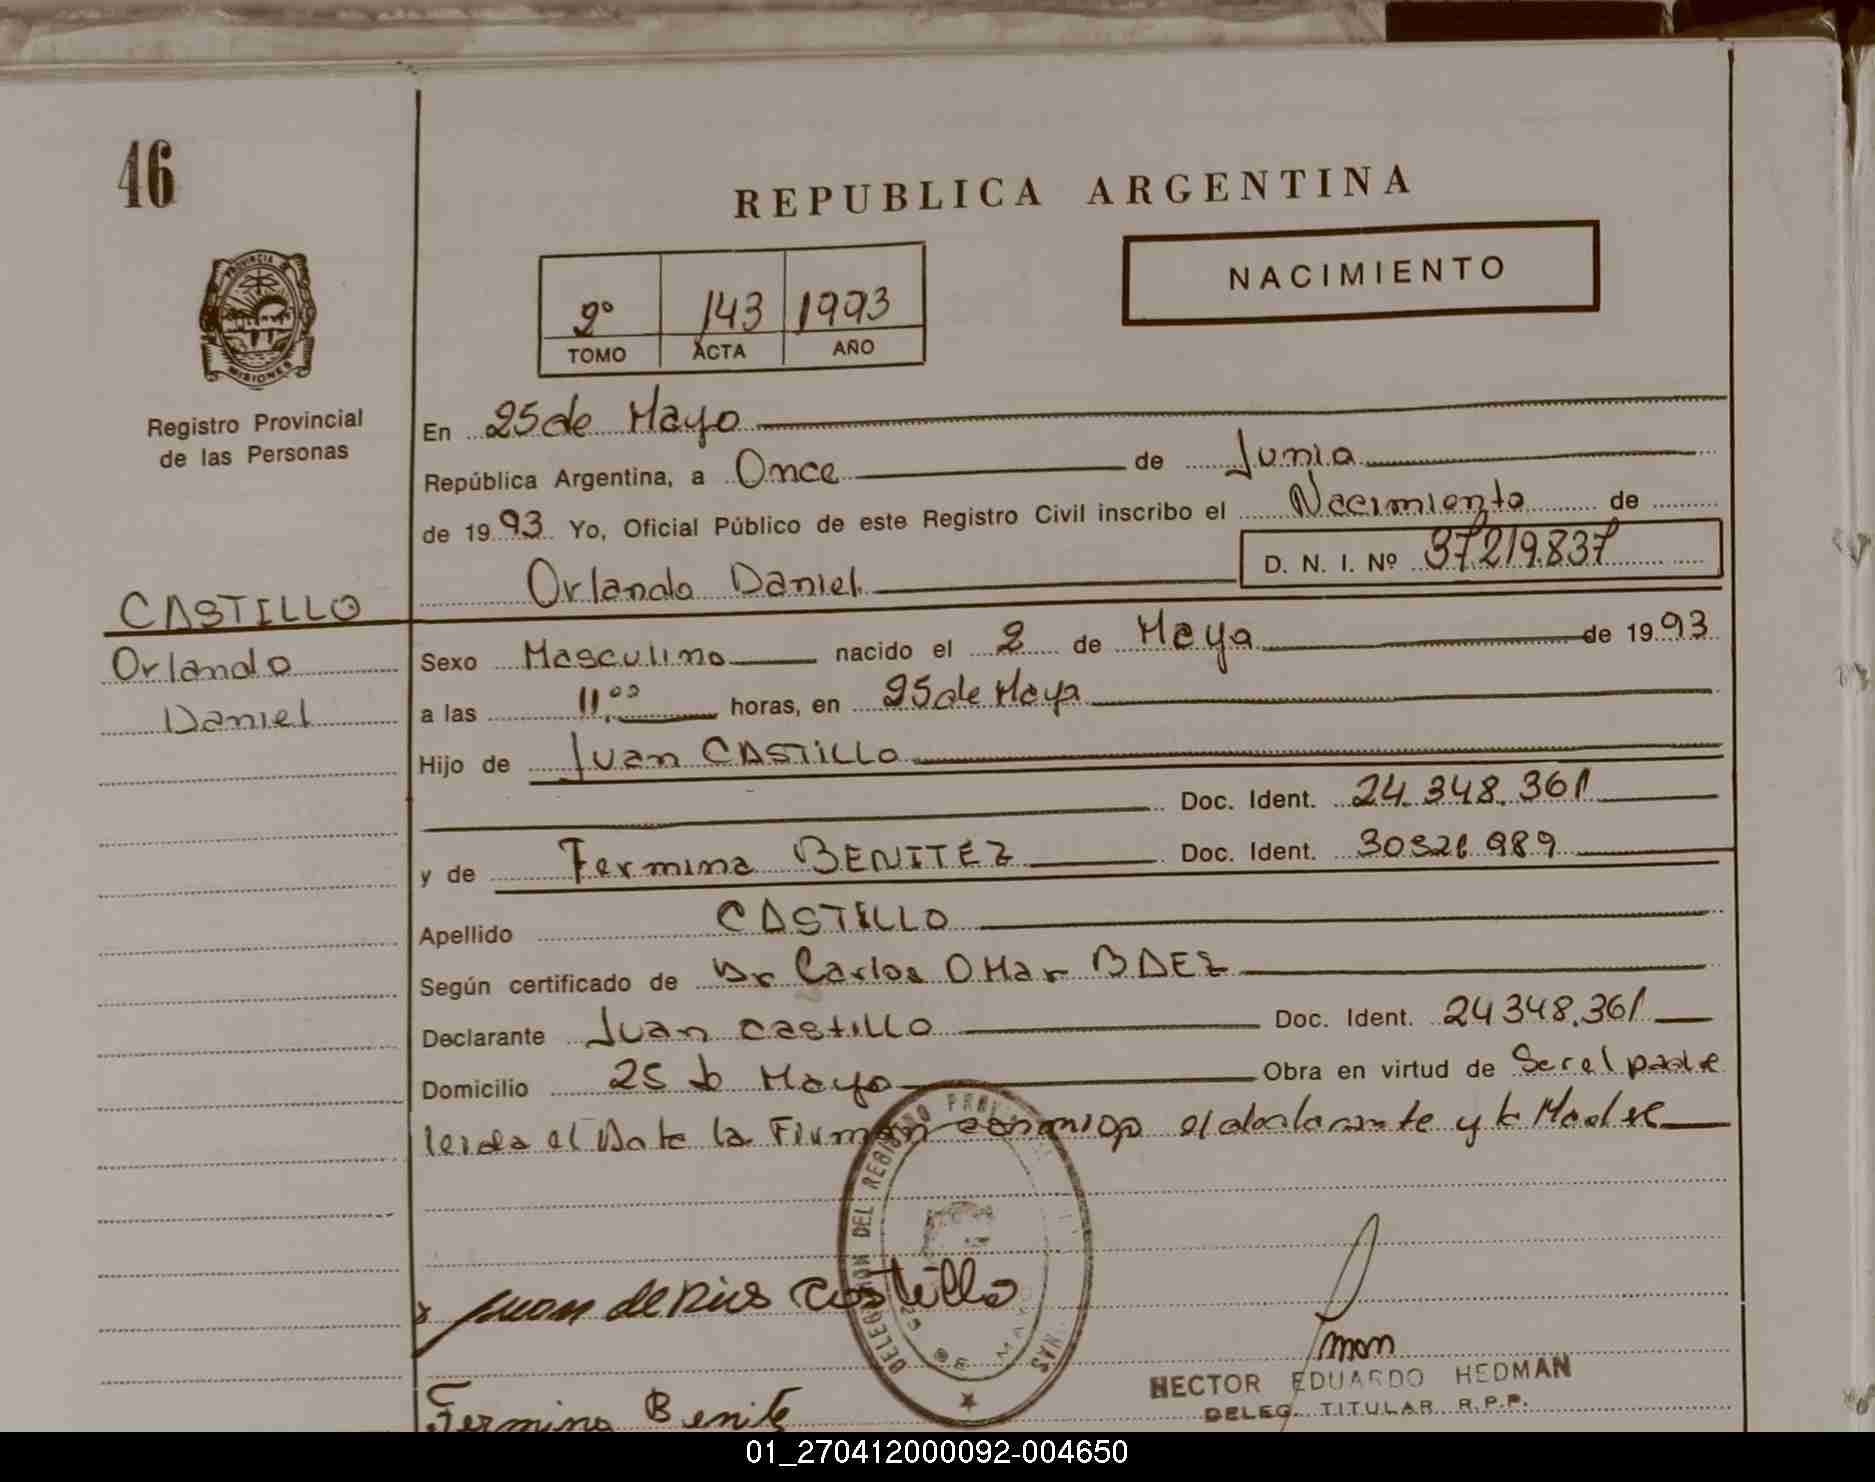 46
REPUBLICA ARGENTINA
NACIMIENTO
2º 143 1993
TOMO ACTA AÑO
PROVINCIA DE MISIONES
Registro Provincial
de las Personas
En 25 de Mayo
República Argentina, a Once de Junio
de 1993 Yo, Oficial Público de este Registro Civil inscribo el Nacimiento de
D. N. I. Nº 37219.837
Orlando Daniel
CASTILLO
Orlando
Daniel
Sexo Masculino nacido el 2 de Mayo de 1993
a las 11.00 horas, en 25 de Mayo
Hijo de Juan CASTILLO
Doc. Ident. 24.348.361
y de Fermina BENITEZ Doc. Ident. 30521989
Apellido CASTILLO
Según certificado de Dr Carlos OMar BAEZ
Declarante Juan Castillo Doc. Ident. 24348.361
Domicilio 25 D Mayo Obra en virtud de Ser el padre
leida el Acta la Firman conmigo el declarante y la Madre
DELEGACION DEL REGISTRO PROVINCIAL
25 DE MAYO
Juan de Dios Castillo
HECTOR EDUARDO HEDMAN
DELEG. TITULAR R.P.P.
Fermina Benite
01_270412000092-004650